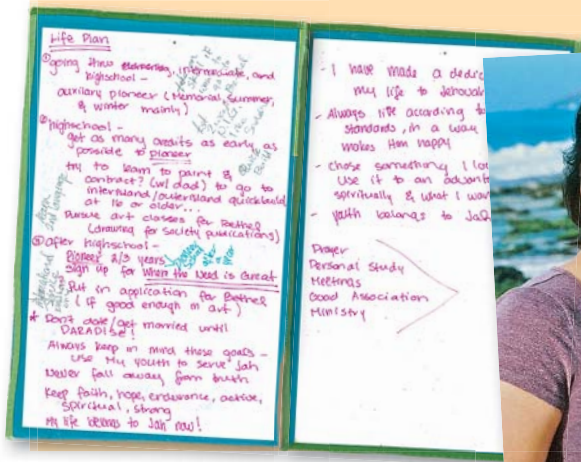 Life Plan
① going thru elementary, intermediate, and
highschool –
auxilary pioneer (Memorial, Summer,
& winter mainly)
② highschool –
get as many credits as early as
possible to pioneer
try to learn to paint &
contract? (w/ dad) to go to
interisland/outerisland quickbuild
at 16 or older...
Pursue art classes for Bethel
(drawing for society publications)
③ after highschool –
Pioneer 2/3 years
Sign up for Where the Need is Great
Put in application for Bethel
(if good enough in art)
* Don't date/get married until
PARADISE!
Always keep in mind these goals –
use My youth to serve Jah
Never fall away from truth
Keep faith, hope, endurance, active,
spiritual, strong
My life belongs to Jah now!
- I have made a dedic
my life to Jehovah
- Always live according to
standards, in a way
makes Him happy
- chose something I lo
use it to an advant
spiritually & what I wan
- youth belongs to Jah
Prayer
Personal Study
Meetings
Good Association
Ministry